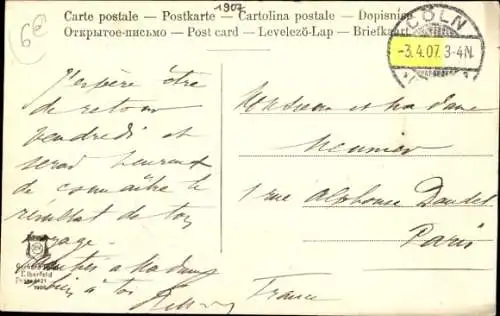 1907
6€
Carte postale — Postkarte — Cartolina postale — Dopisnice
Открытое-письмо — Post card — Levelező-Lap — Briefkaart
CÖLN
-3.4.07. 3-4N.
J'espère être
de retour
vendredi et
serai heureux
de connaître le
résultat de ton
voyage.
Monsieur et Madame
Meunier
1 rue Alphonse Daudet
Paris
France
Elberfeld